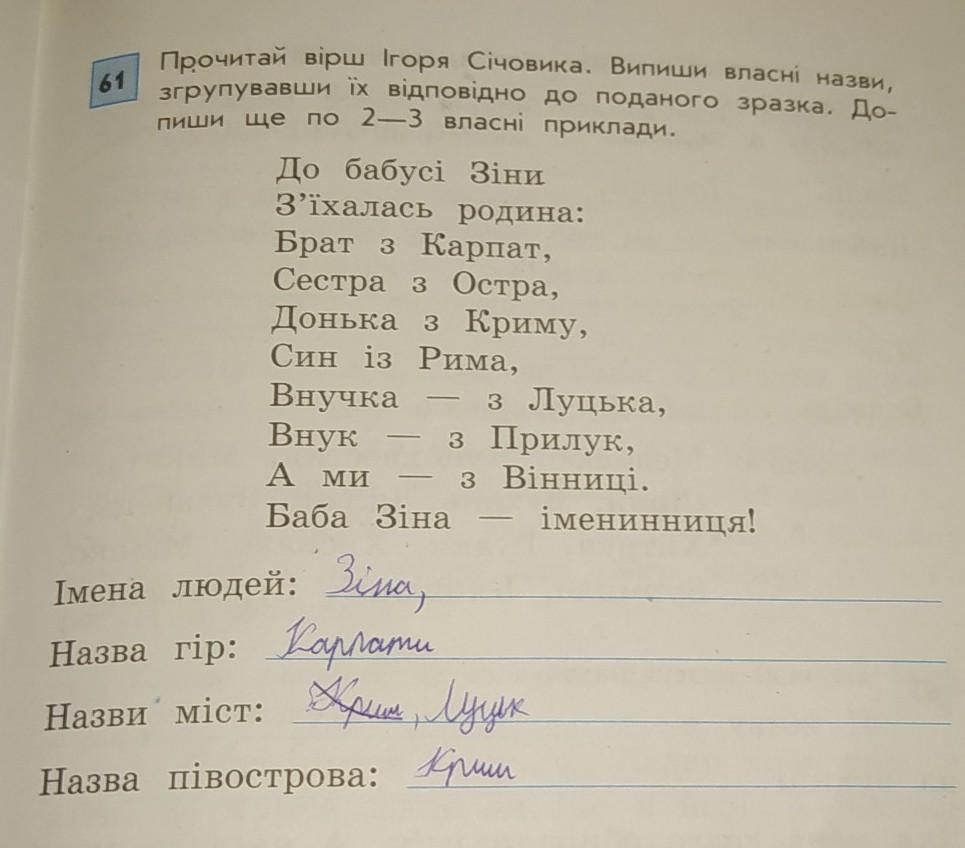 61 Прочитай вірш Ігоря Січовика. Випиши власні назви,
згрупувавши їх відповідно до поданого зразка. До-
пиши ще по 2—3 власні приклади.
До бабусі Зіни
З’їхалась родина:
Брат з Карпат,
Сестра з Остра,
Донька з Криму,
Син із Рима,
Внучка — з Луцька,
Внук — з Прилук,
А ми — з Вінниці.
Баба Зіна — іменинниця!
Імена людей: Зіна,
Назва гір: Карпати
Назви міст: Крим, Луцьк
Назва півострова: Крим